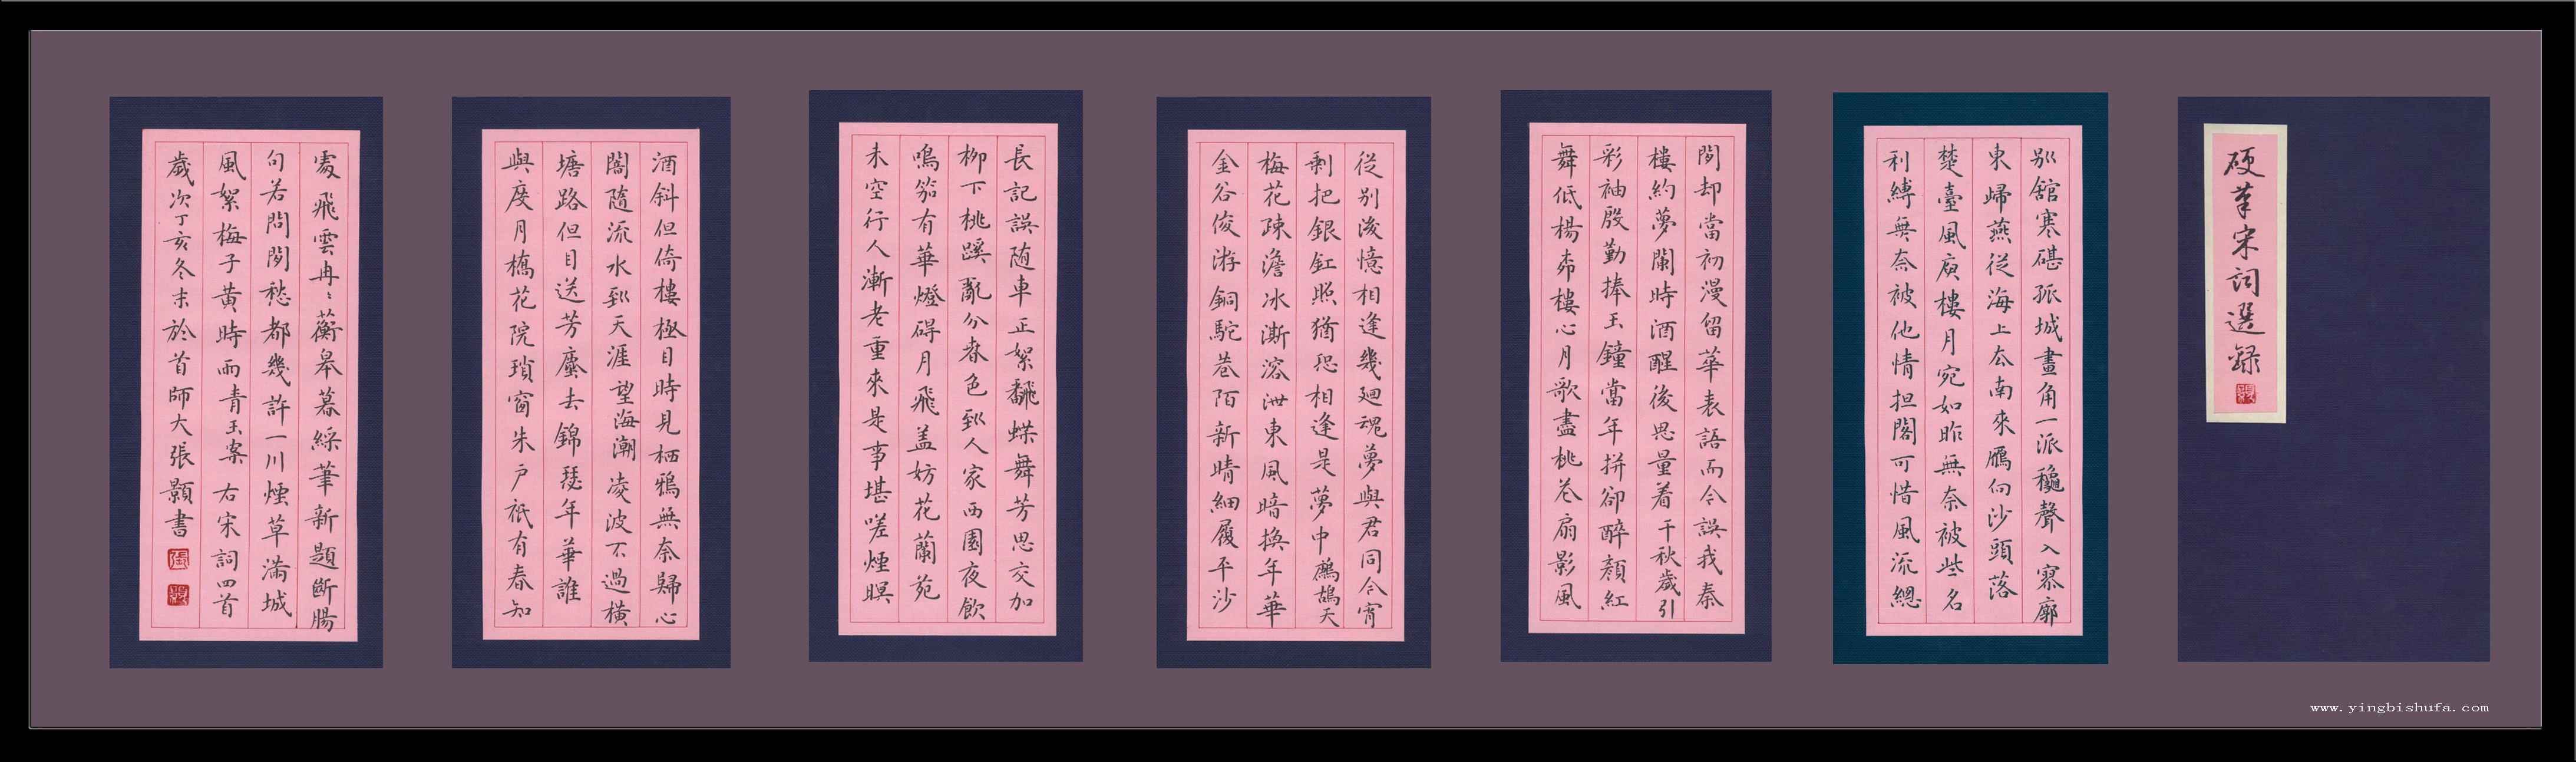 硬筆宋詞選録
別舘寒碪孤城畫角一派龝聲入寥廓
東歸燕從海上去南來鴈向沙頭落
楚臺風庾樓月宛如昨無奈被些名
利縛無奈被他情担閣可惜風流總
閒却當初漫留華表語而今誤我秦
樓約夢闌時酒醒後思量着千秋歲引
彩袖殷勤捧玉鐘當年拼卻醉顏紅
舞低楊柳樓心月歌盡桃花扇影風
從別後憶相逢幾廻魂夢與君同今宵
剩把銀釭照猶恐相逢是夢中鷓鴣天
梅花疎澹冰澌溶泄東風暗換年華
金谷俊游銅駝巷陌新晴細履平沙
長記誤随車正絮飜蝶舞芳思交加
柳下桃蹊亂分春色到人家西園夜飲
鳴笳有華燈碍月飛盖妨花蘭苑
未空行人漸老重來是事堪嗟煙暝
酒斜但倚樓極目時見栖鴉無奈歸心
闇隨流水到天涯望海潮凌波不過橫
塘路但目送芳塵去錦瑟年華誰
與度月橋花院瑣窗朱戶祇有春知
處飛雲冉〻蘅皋暮綵筆新題斷腸
句若問閒愁都幾許一川煙草滿城
風絮梅子黃時雨青玉案右宋詞四首
歲次丁亥冬末於首師大張顥書
www.yingbishufa.com